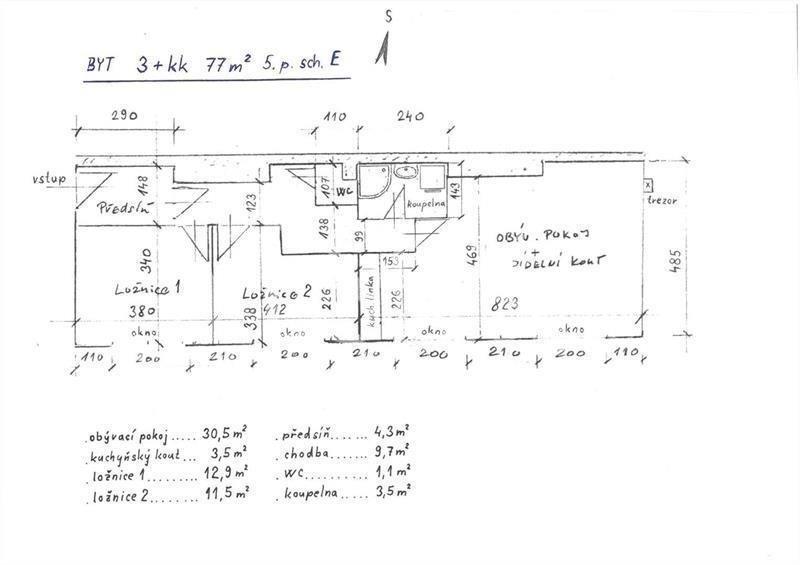 S
BYT 3+kk 77m² 5.p. sch. E
290
110
240
vstup
148
PŘEDSÍŇ
123
107
WC
138
99
koupelna
143
trezor
OBÝV. POKOJ
+
JÍDELNÍ KOUT
469
485
340
LOŽNICE 1
380
LOŽNICE 2
412
338
226
153
kuch linka
226
823
okno
okno
okno
okno
110
200
210
200
210
200
210
200
110
. obývací pokoj ..... 30,5 m²
. kuchyňský kout .. 3,5 m²
. ložnice 1 ........ 12,9 m²
. ložnice 2 ........ 11,5 m²
. předsíň ....... 4,3 m²
. chodba ....... 9,7 m²
. WC ........... 1,1 m²
. koupelna .... 3,5 m²